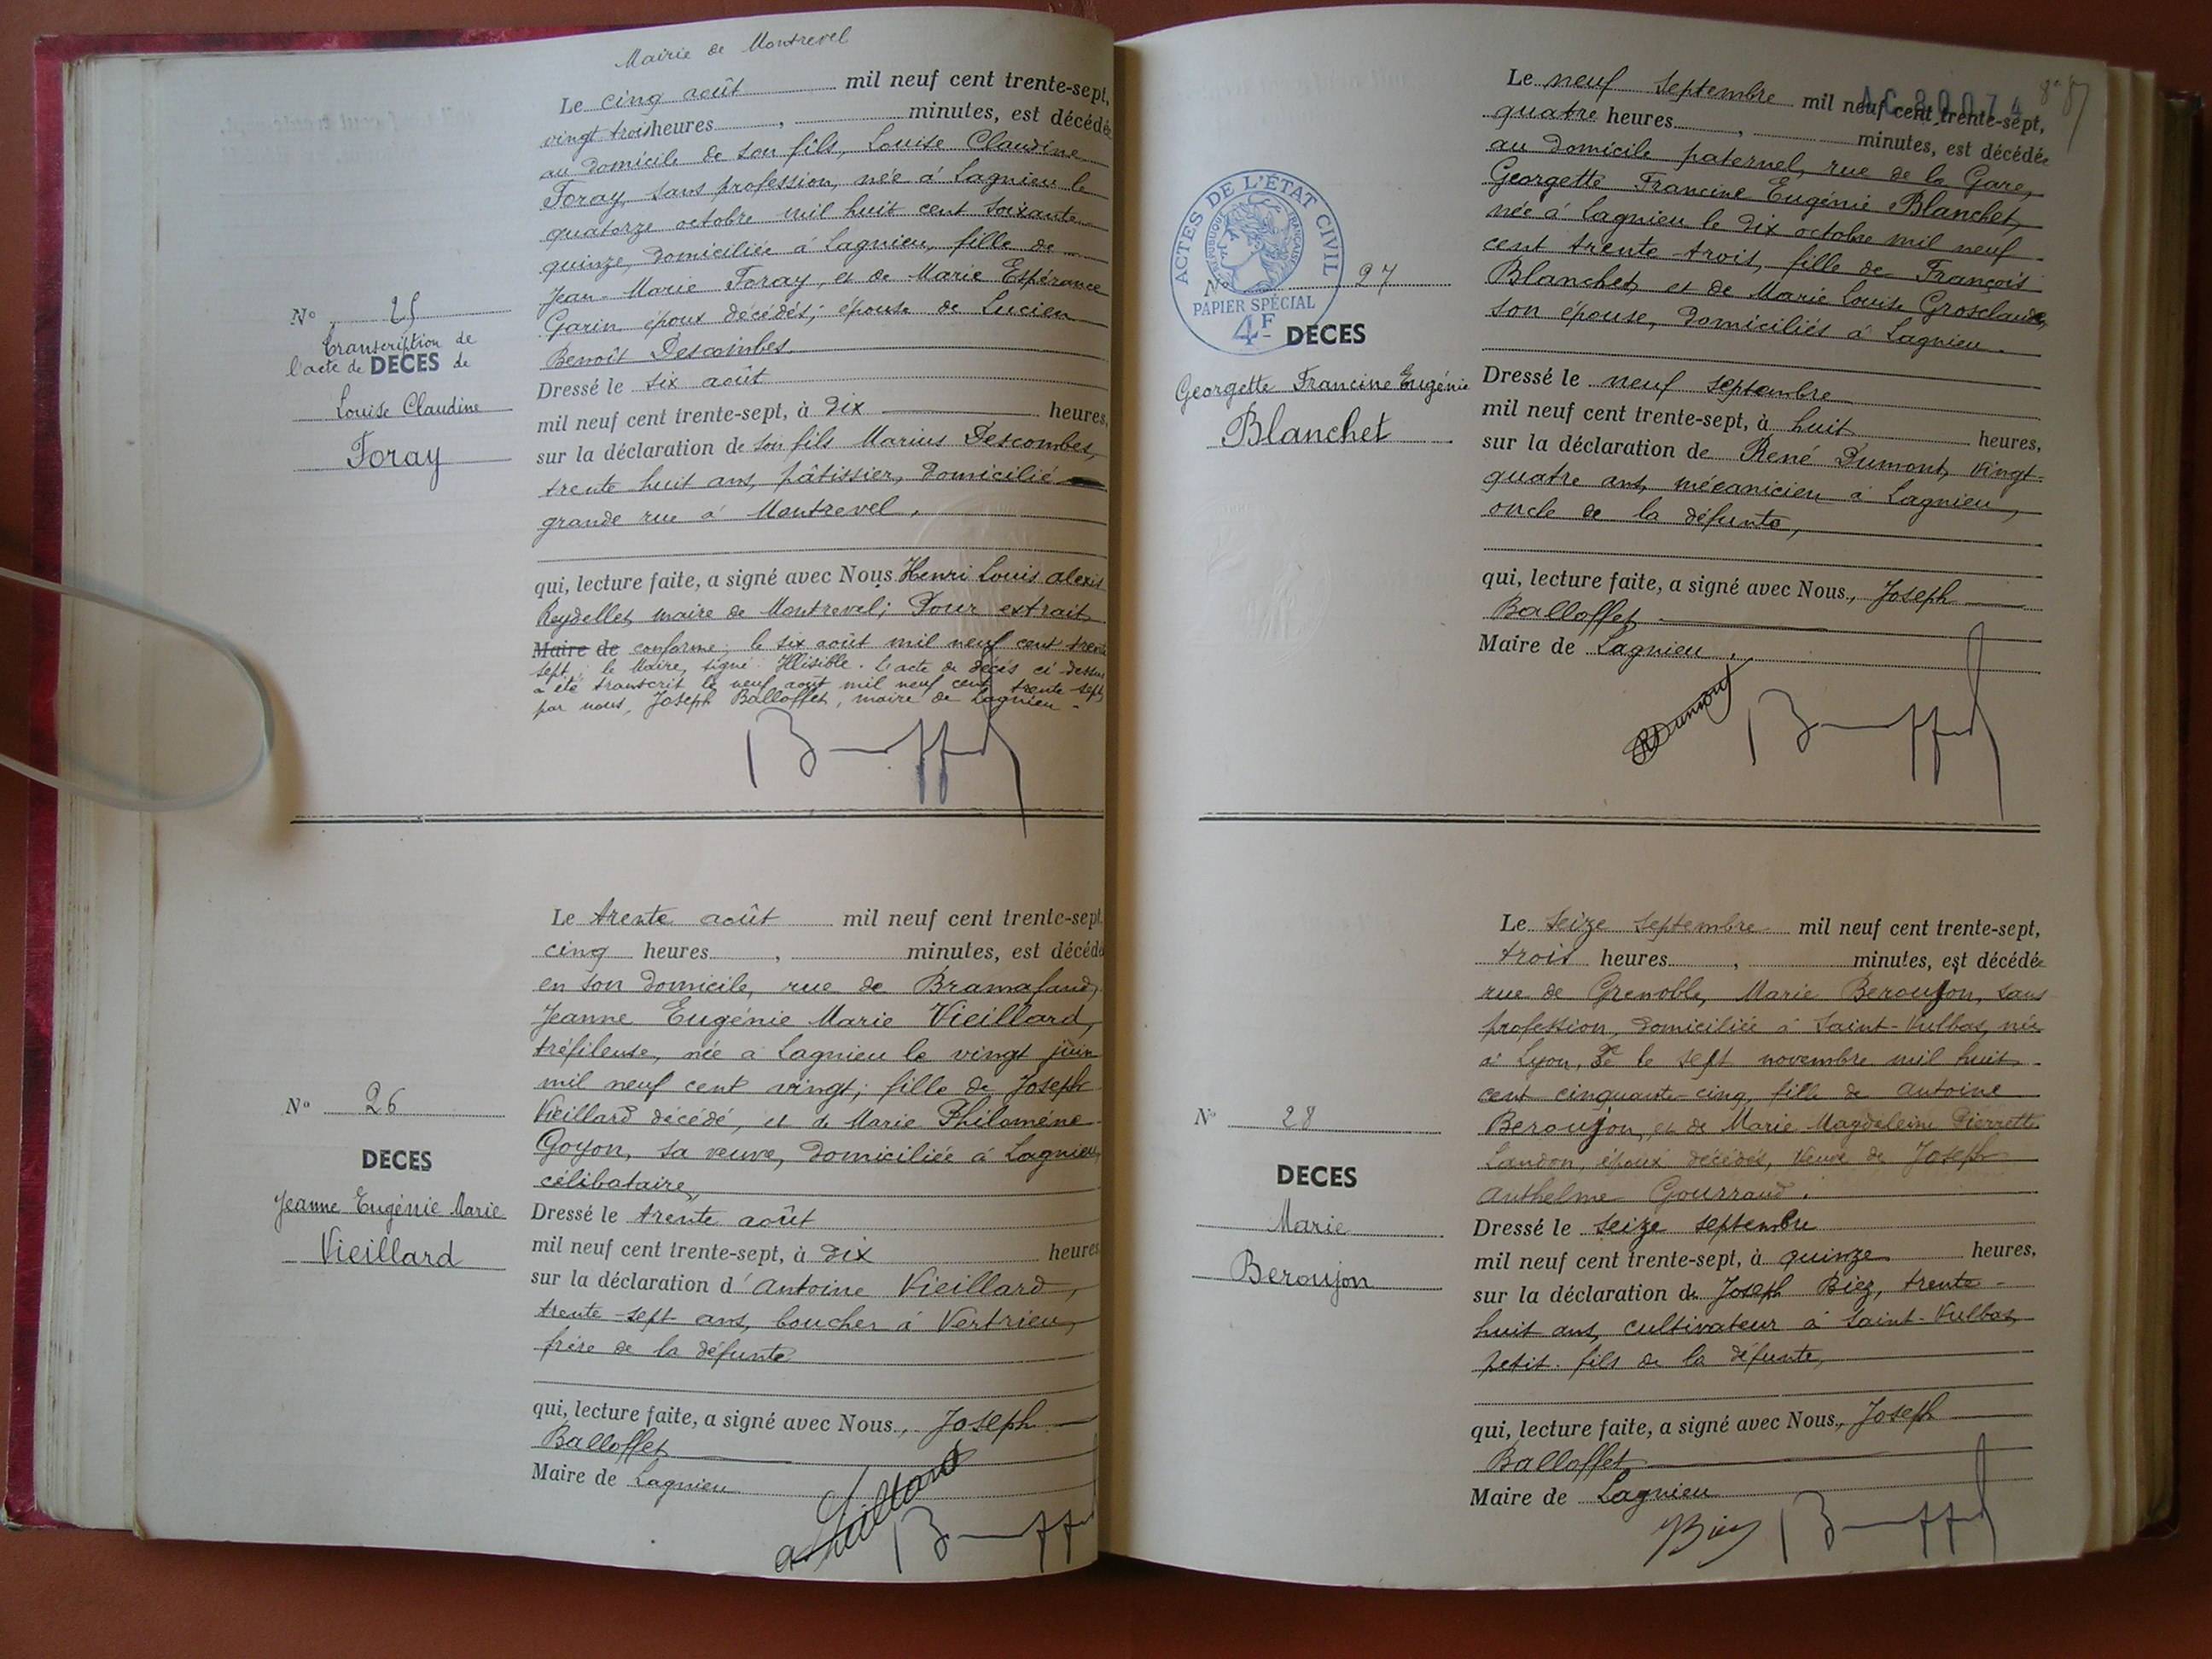 Mairie de Montrevel
Le cinq août mil neuf cent trente-sept,
vingt trois heures , minutes, est décédée
au domicile de son fils, Louise Claudine
Foray, sans profession, née à Lagnieu le
quatorze octobre mil huit cent soixante
quinze, domiciliée à Lagnieu, fille de
Jean-Marie Foray, et de Marie Espérance
Garin époux décédés; épouse de Lucien
Benoît Descombes.
N° 25
transcription de
l'acte de DECES de
Louise Claudine
Foray
Dressé le six août
mil neuf cent trente-sept, à dix heures,
sur la déclaration de son fils Marius Descombes,
trente huit ans, pâtissier, domicilié
grande rue à Montrevel,
qui, lecture faite, a signé avec Nous Henri Louis Alexis
Reydellet, maire de Montrevel; Pour extrait
Maire de conforme; le six août mil neuf cent trente
sept; le Maire, signé: Illisible. L'acte de décès ci-dessus
a été transcrit le neuf août mil neuf cent trente sept,
par nous, Joseph Balloffet, maire de Lagnieu -
Le trente août mil neuf cent trente-sept,
cinq heures , minutes, est décédé
en son domicile, rue de Bramafand,
Jeanne Eugénie Marie Vieillard,
tréfileuse, née à Lagnieu le vingt juin
mil neuf cent vingt; fille de Joseph
Vieillard décédé, et de Marie Philomène
Goyon, sa veuve, domiciliée à Lagnieu,
célibataire,
N° 26
DECES
Jeanne Eugénie Marie
Vieillard
Dressé le trente août
mil neuf cent trente-sept, à dix heures
sur la déclaration d'Antoine Vieillard,
trente-sept ans, boucher à Vertrieu,
frère de la défunte
qui, lecture faite, a signé avec Nous, Joseph
Balloffet
Maire de Lagnieu
AC 80074
87
Le neuf septembre mil neuf cent trente-sept,
quatre heures , minutes, est décédée
au domicile paternel, rue de la Gare,
Georgette Francine Eugénie Blanchet,
née à Lagnieu le dix octobre mil neuf
cent trente-trois, fille de François
Blanchet, et de Marie Louise Grosclaude,
son épouse, domiciliés à Lagnieu.
ACTES DE L'ÉTAT CIVIL
RÉPUBLIQUE FRANÇAISE
PAPIER SPÉCIAL
4F
N° 27
DECES
Georgette Francine Eugénie
Blanchet
Dressé le neuf septembre
mil neuf cent trente-sept, à huit heures,
sur la déclaration de René Dumont, vingt-
quatre ans, mécanicien à Lagnieu,
oncle de la défunte,
qui, lecture faite, a signé avec Nous, Joseph
Balloffet
Maire de Lagnieu.
RDumont
Le seize septembre mil neuf cent trente-sept,
trois heures , minutes, est décédée
rue de Grenoble, Marie Beroujon, sans
profession, domiciliée à Saint-Vulbas, née
à Lyon, 3e le sept novembre mil huit
cent cinquante-cinq, fille de Antoine
Beroujon, et de Marie Magdeleine Pierrette
Landon, époux décédés, veuve de Joseph
Anthelme Gourraud.
N° 28
DECES
Marie
Beroujon
Dressé le seize septembre
mil neuf cent trente-sept, à quinze heures,
sur la déclaration de Joseph Biez, trente-
huit ans, cultivateur à Saint-Vulbas,
petit-fils de la défunte,
qui, lecture faite, a signé avec Nous, Joseph
Balloffet
Maire de Lagnieu
JBiez